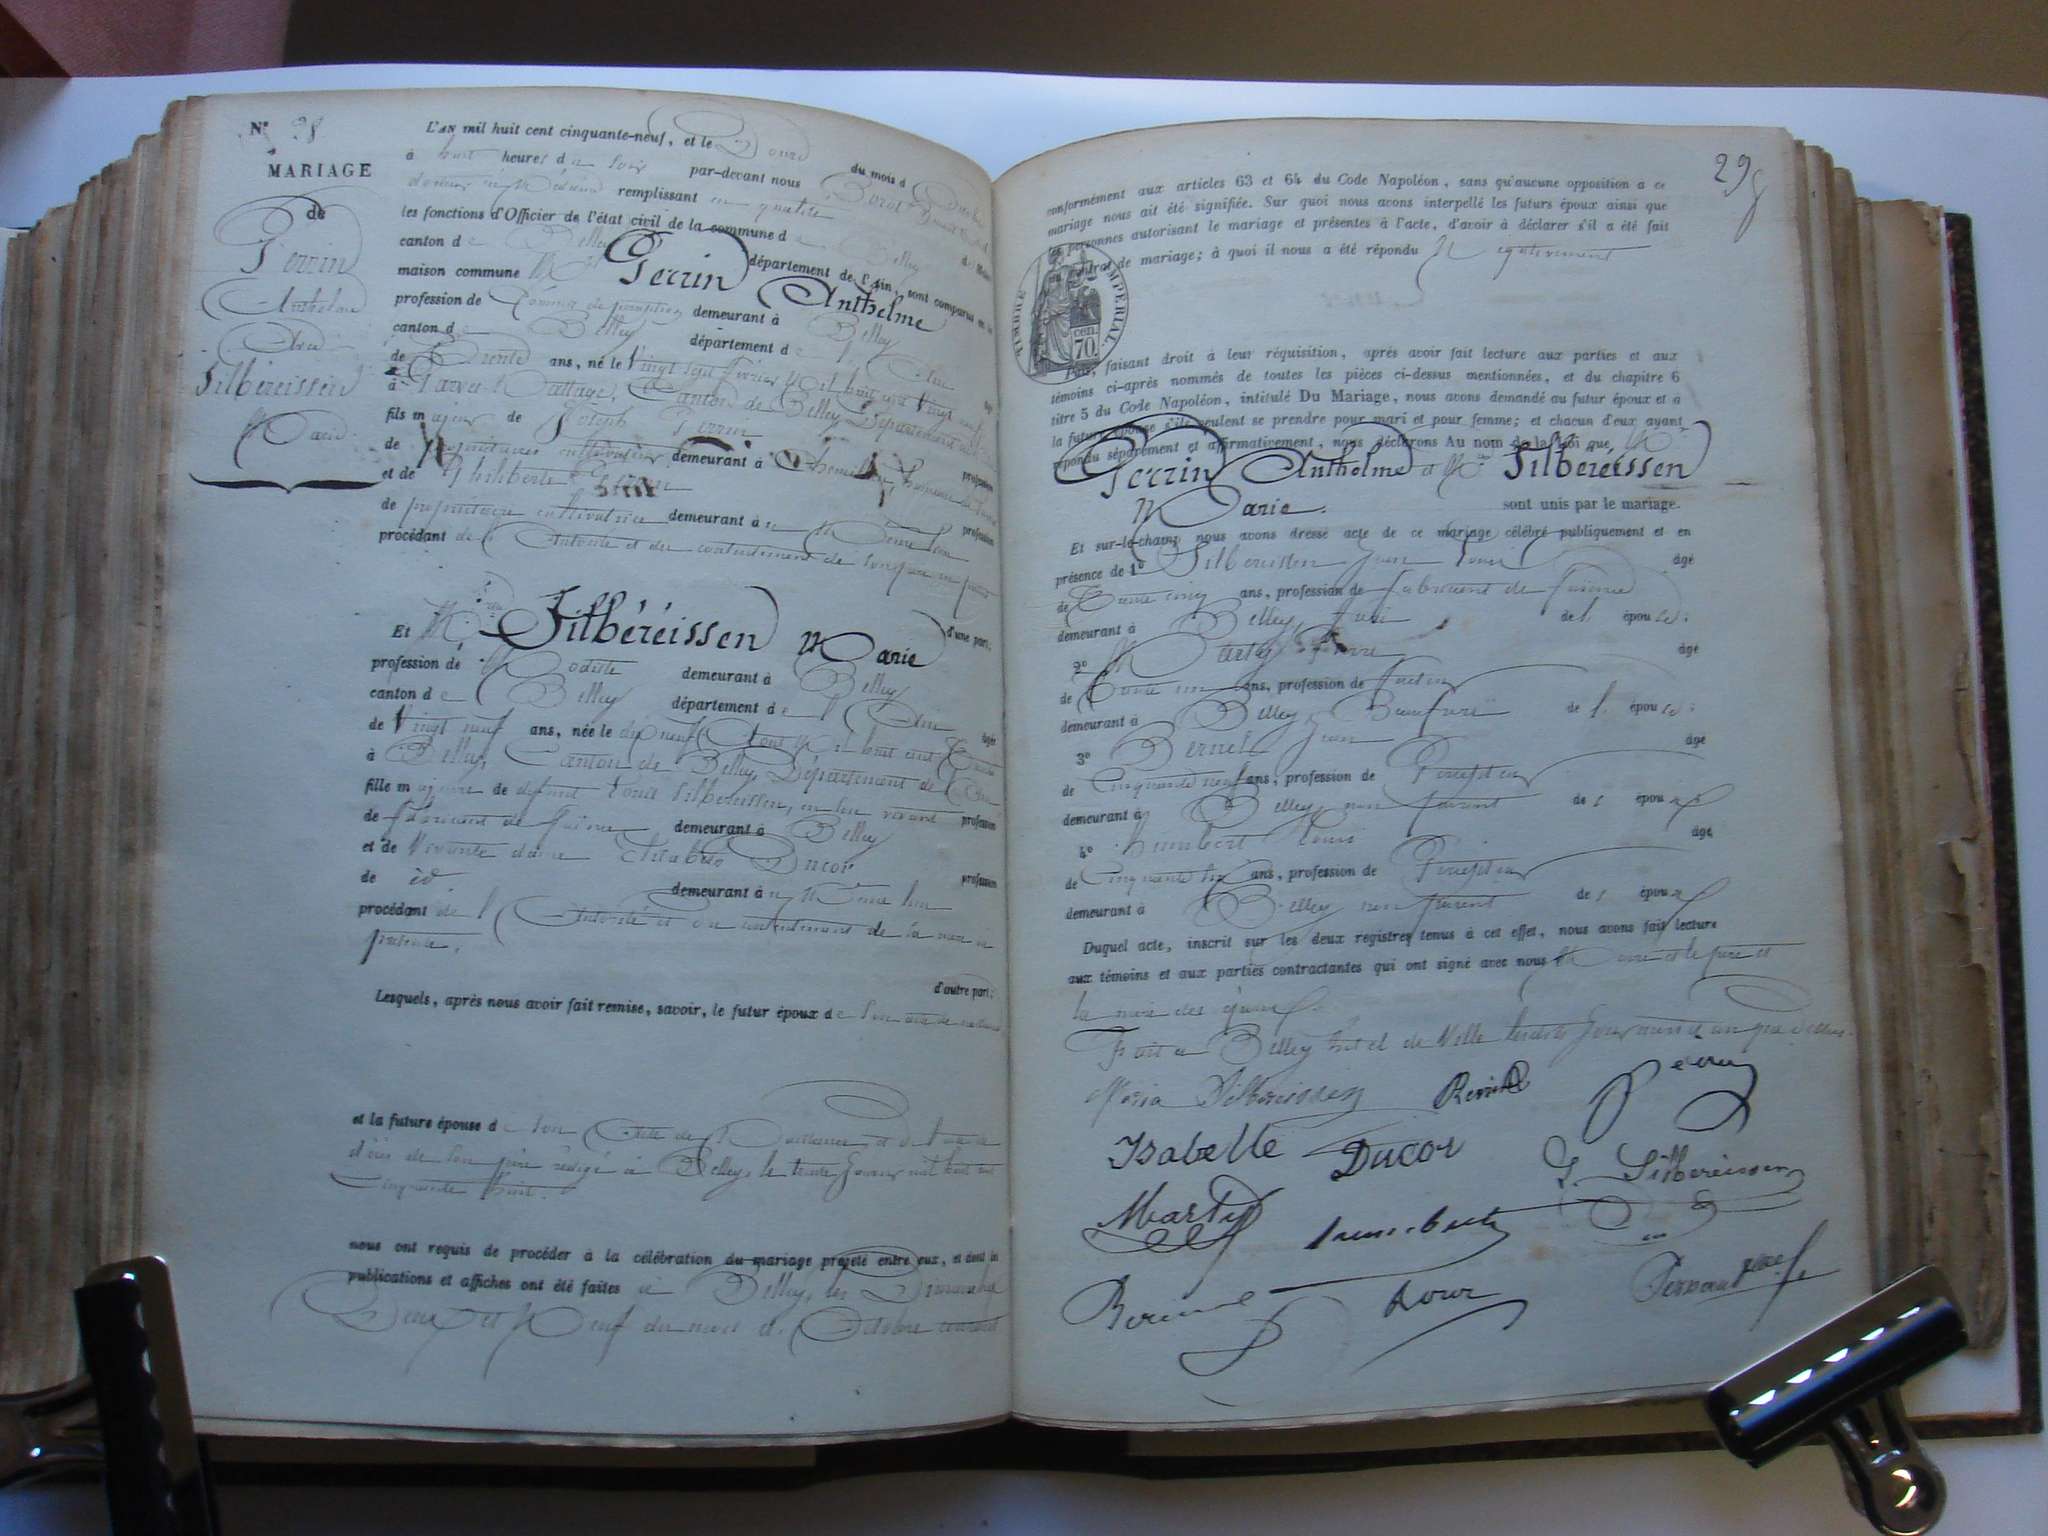 N° 28
MARIAGE
de
Perrin
Anthelme
Avec
Silbéreissen
Marie
L'AN mil huit cent cinquante-neuf, et le Douze du mois d
à huit heures du soir par-devant nous
docteur en Médecin remplissant en qualité
les fonctions d'Officier de l'état civil de la commune de Belley
canton de Belley département de l'Ain, sont comparus en la
maison commune Mr Perrin Anthelme
profession de Commis de perception demeurant à Belley
canton de Belley département de l'Ain
de Trente ans, né le Vingt sept février Mil huit cent Vingt neuf
à Parves Canton de Belley, Département
fils majeur de Joseph Perrin
de propriétaire cultivateur demeurant à profession
et de Philiberte
de propriétaire cultivatrice demeurant à au Même lieu profession
procédant de l'Autorité et du consentement de son père ici présent
d'une part;
Et Mlle Silbéreissen Marie
profession de Modiste demeurant à Belley
canton de Belley département de l'Ain
de Vingt neuf ans, née le dix neuf Août Mil huit cent Trente
à Belley, Canton de Belley, Département de l'Ain
fille majeure de défunt Louis Silbereissen, en son vivant profession
de fabricant de faïence demeurant à Belley
et de Vivante dame Elisabeth Ducor profession
de id demeurant à au Même lieu
procédant de l'Autorité et du consentement de sa mère ici
présente,
d'autre part;
Lesquels, après nous avoir fait remise, savoir, le futur époux de son acte de naissance
et la future épouse de son Acte de Naissance et de l'acte de
décès de son père rédigé à Belley, le trente Janvier mil huit cent
Cinquante huit.
nous ont requis de procéder à la célébration du mariage projeté entre eux, et dont les
publications et affiches ont été faites à Belley, les Dimanche
Deux et Neuf du mois d'Octobre courant
29
conformément aux articles 63 et 64 du Code Napoléon, sans qu'aucune opposition a ce
mariage nous ait été signifiée. Sur quoi nous avons interpellé les futurs époux ainsi que
les personnes autorisant le mariage et présentes à l'acte, d'avoir à déclarer s'il a été fait
un contrat de mariage; à quoi il nous a été répondu Négativement
TIMBRE IMPERIAL
cen.
70.
Puis, faisant droit à leur réquisition, après avoir fait lecture aux parties et aux
témoins ci-après nommés de toutes les pièces ci-dessus mentionnées, et du chapitre 6
titre 5 du Code Napoléon, intitulé Du Mariage, nous avons demandé au futur époux et a
la future épouse s'ils veulent se prendre pour mari et pour femme; et chacun d'eux ayant
répondu séparément et affirmativement, nous déclarons Au nom de la Loi que Mr
Perrin Anthelme et Mlle Silbéreissen
Marie. sont unis par le mariage.
Et sur-le-champ nous avons dressé acte de ce mariage célébré publiquement et en
présence de 1° Silbereissen Jean Louis âgé
de Trente cinq ans, profession de fabricant de faïence
demeurant à Belley, frère de l'épouse;
2° Marty Pierre âgé
de Trente un ans, profession de
demeurant à Belley, Beaufrère de l'épouse;
3° Bernel Jean âgé
de Cinquante neuf ans, profession de Percepteur
demeurant à Belley, non parent des époux
4° Humbert Louis âgé
de Cinquante six ans, profession de Percepteur
demeurant à Belley non parent des époux
Duquel acte, inscrit sur les deux registres tenus à cet effet, nous avons fait lecture
aux témoins et aux parties contractantes qui ont signé avec nous Maire et le père et
la mère des époux.
Fait à Belley hôtel de Ville les dits Jour mois et an que dessus.
Maria Silbereissen
Perrin
Isabelle Ducor
J. Silbereissen
Marty
humbert